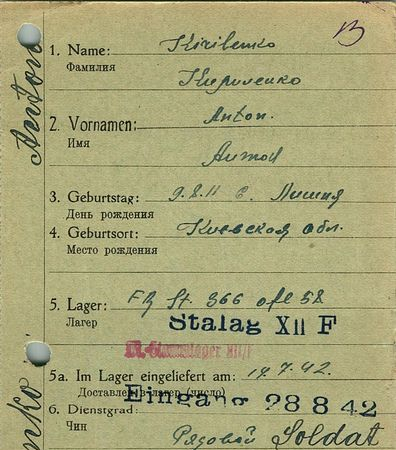 Anton
B
1. Name: Kirilenko
Фамилия
Кириленко
2. Vornamen: Anton.
Имя
Антон
3. Geburtstag: 9.8.11 с.
День рождения
4. Geburtsort: Киевская обл.
Место рождения
5. Lager: St. 366
Лагер
Stalag XII F
5a. Im Lager eingeliefert am: 19.7.42.
Доставлен в лагер (число)
Eingang 28 8 42
6. Dienstgrad:
Чин
Рядовой Soldat
nko